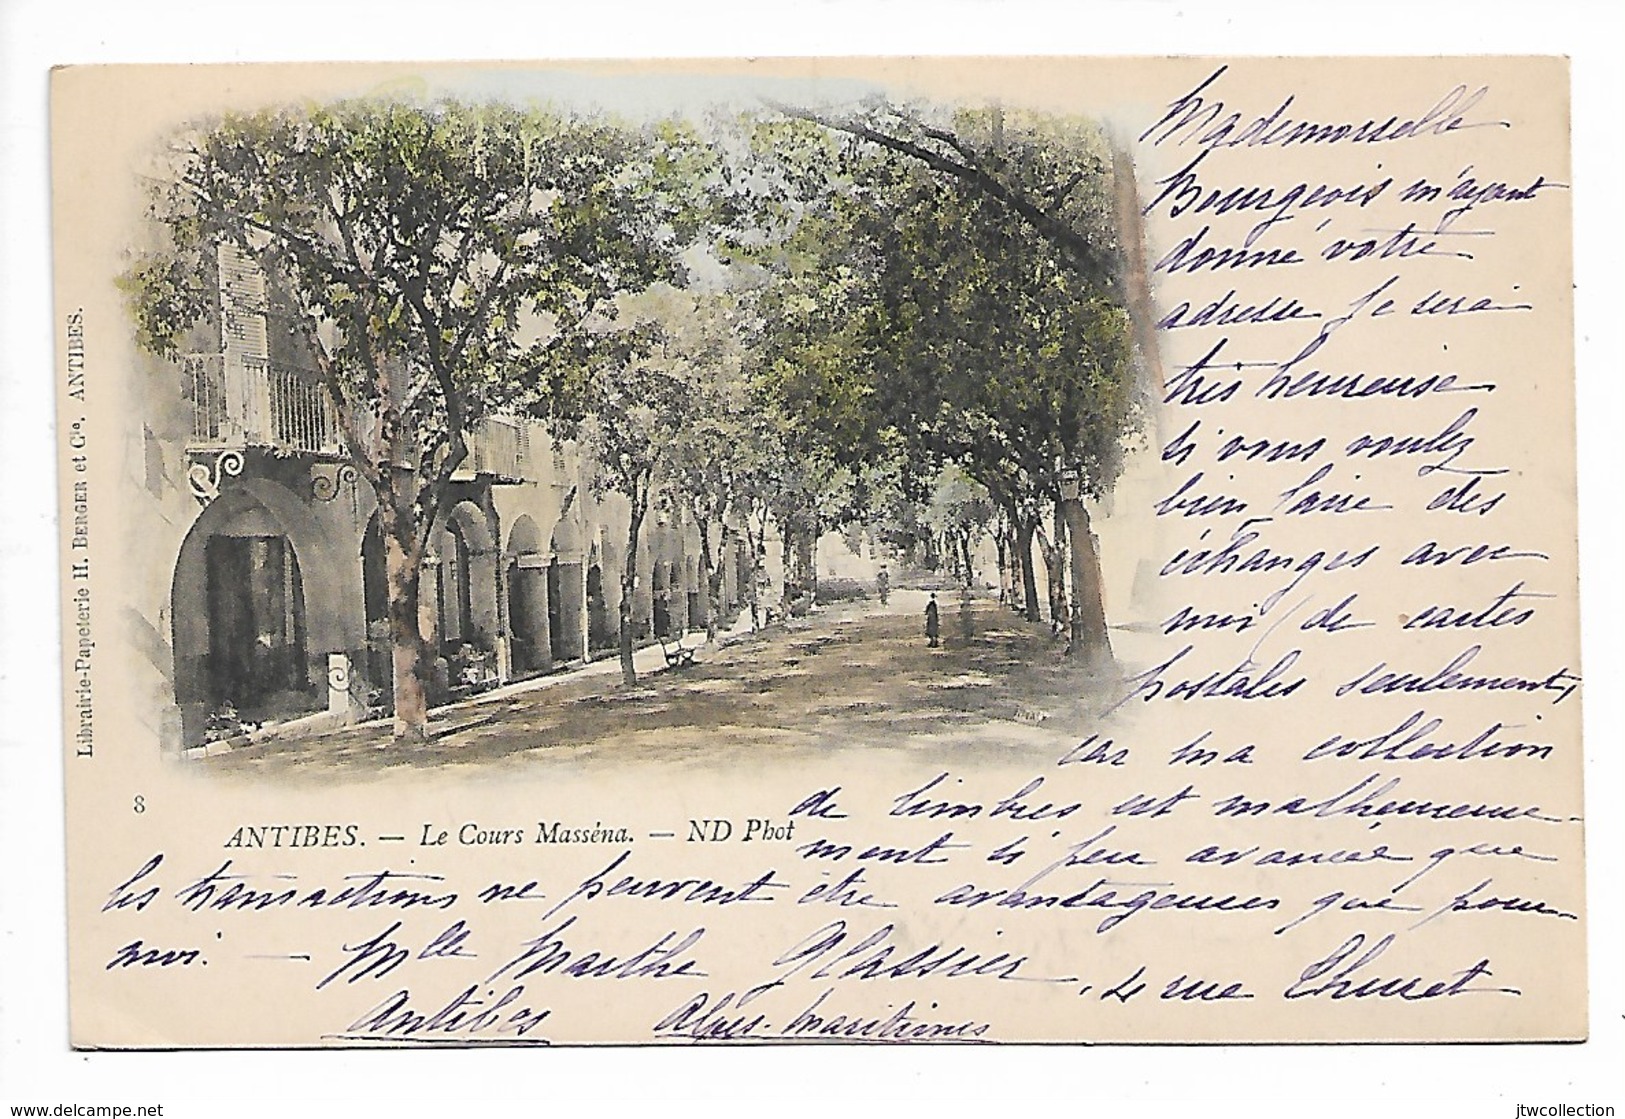 Mademoiselle
Bourgeois m'ayant
donné votre
adresse je serai
très heureuse
si vous voulez
bien faire des
échanges avec
moi (de cartes
postales seulement,
car ma collection
de timbres est malheureuse-
ment si peu avancée que
les transactions ne peuvent être avantageuses que pour
moi. — Mlle Marthe Glassier, 4 rue Thuret
Antibes Alpes-Maritimes
Librairie-Papeterie H. BERGER et Cie. ANTIBES.
8
ANTIBES. — Le Cours Masséna. — ND Phot
www.delcampe.net
jtwcollection